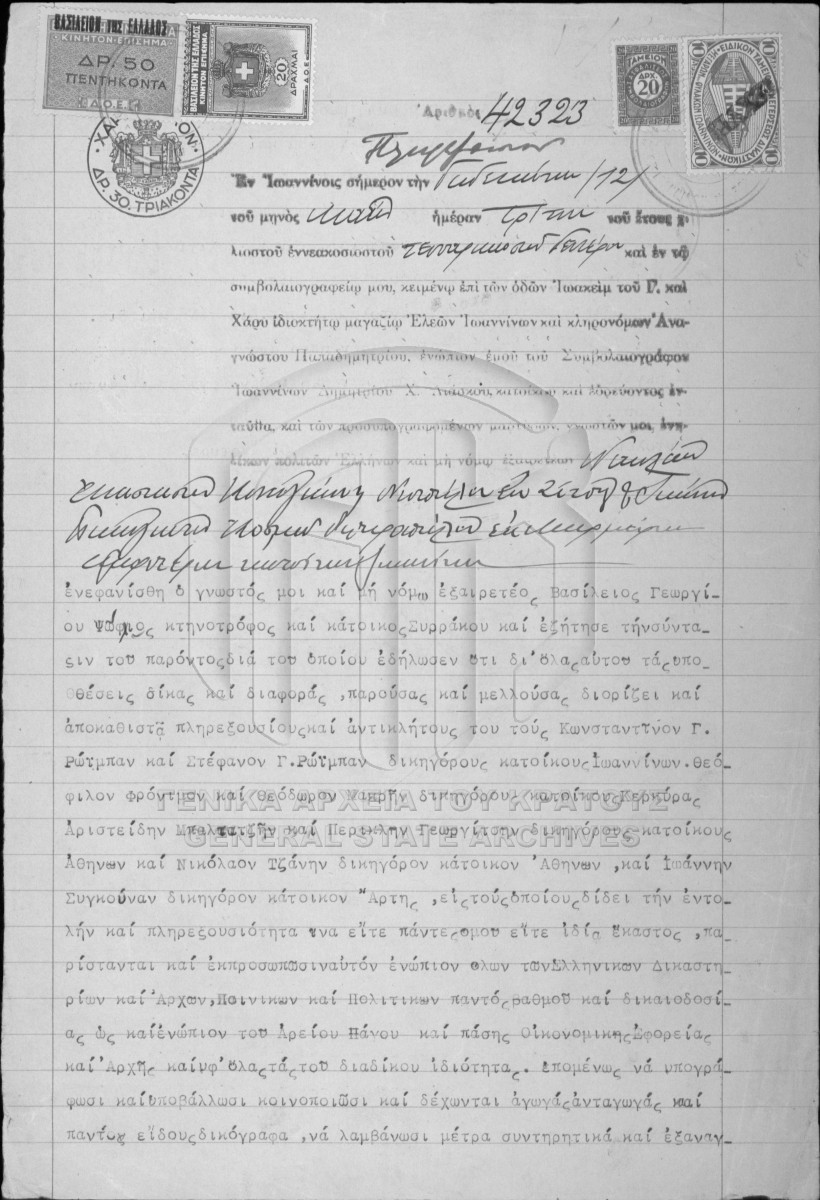 ΒΑΣΙΛΕΙΟΝ ΤΗΣ ΕΛΛΑΔΟΣ
ΚΙΝΗΤΟΝ ΕΠΙΣΗΜΑ
ΔΡ. 50
ΠΕΝΤΗΚΟΝΤΑ
Δ.Ο.Ε.
ΒΑΣΙΛΕΙΟΝ ΤΗΣ ΕΛΛΑΔΟΣ
ΚΙΝΗΤΟΝ ΕΠΙΣΗΜΑ
20
ΔΡΑΧΜΑΙ
Δ.Ο.Ε.
ΤΑΜΕΙΟΝ
ΔΡΧ.
20
ΔΡ. 30. ΤΡΙΑΚΟΝΤΑ
42323
Πληρεξούσιον
Ἐν Ἰωαννίνοις σήμερον τὴν δωδεκάτην /12/
τοῦ μηνὸς Μαΐου ἡμέραν Τρίτην τοῦ ἔτους χι-
λιοστοῦ ἐννεακοσιοστοῦ τεσσαρακοστοῦ δευτέρου καὶ ἐν τῷ
συμβολαιογραφείῳ μου, κειμένῳ ἐπὶ τῶν ὁδῶν Ἰωακεὶμ τοῦ Γ. καὶ
Χάρυ ἰδιοκτήτῳ μαγαζίῳ Ἐλεῶν Ἰωαννίνων καὶ κληρονόμων Ἀνα-
γνώστου Παπαδημητρίου, ἐνώπιον ἐμοῦ τοῦ Συμβολαιογράφου
Ἰωαννίνων Δημητρίου Χ. Λιάσκου, κατοίκου καὶ ἑδρεύοντος ἐν-
ταῦθα, καὶ τῶν προσυπογραφομένων μαρτύρων, γνωστῶν μοι, ἐνη-
λίκων πολιτῶν Ἑλλήνων καὶ μὴ νόμῳ ἐξαιρετέων
ἐνεφανίσθη ὁ γνωστός μοι καί μή νόμῳ ἐξαιρετέος Βασίλειος Γεωργί-
ου Ψώχιος κτηνοτρόφος καί κάτοικος Συρράκου καί ἐζήτησε τήνσύντα-
ξιν του παρόντοςδιά του ὁποίου ἐδήλωσεν ὅτι δι'ὅλαςαὐτου τάςυπο-
θέσεις δίκας καί διαφοράς ,παρούσας καί μελλούσας διορίζει καί
ἀποκαθιστᾷ πληρεξουσίουςκαί ἀντικλήτους του τούς Κωνσταντῖνον Γ.
Ρώυμπαν καί Στέφανον Γ.Ρώυμπαν δικηγόρους κατοίκουςἸωαννίνων.Θεό-
φιλον Φρόντιμον καί θεόδωρον Μακρῆν δικηγόρους κατοίκους Κερκύρας
Ἀριστείδην Μπαλτατζῆν καί Περικλῆν Γεωργίτσην δικηγόρους-κατοίκους
Ἀθηνων καί Νικόλαον Τζάνην δικηγόρον κάτοικον Ἀθηνων ,καί Ἰωάννην
Συγκούναν δικηγόρον κάτοικον Ἄρτης ,εἰςτούςὁποίουςδίδει τήν ἐντο-
λήν καί πληρεξουσιότητα ἵνα εἴτε πάντεςομου εἴτε ἰδίᾳ ἕκαστος ,πα-
ρίστανται καί ἐκπροσωπωσιναὐτόν ἐνώπιον ὅλων τωνἙλληνικων Δικαστη-
ρίων καί Ἀρχων,Ποινικων καί Πολιτικων παντόςβαθμοῦ καί δικαιοδοσί-
ας ὡς καίἐνώπιον του Ἀρείου Πάγου καί πάσης ΟἰκονομικηςἘφορείας
καίἈρχῆς καίυφ'ὅλαςτάςτοῦ διαδίκου ἰδιότητας. Ἑπομένως νά υπογρά-
φωσι καίυποβάλλωσι κοινοποιῶσι καί δέχωνται ἀγωγάςἀνταγωγάς καί
παντός εἴδουςδικόγραφα,νά λαμβάνωσι μέτρα συντηρητικά καί ἐξαναγ-
ΓΕΝΙΚΑ ΑΡΧΕΙΑ ΤΟΥ ΚΡΑΤΟΥΣ
GENERAL STATE ARCHIVES